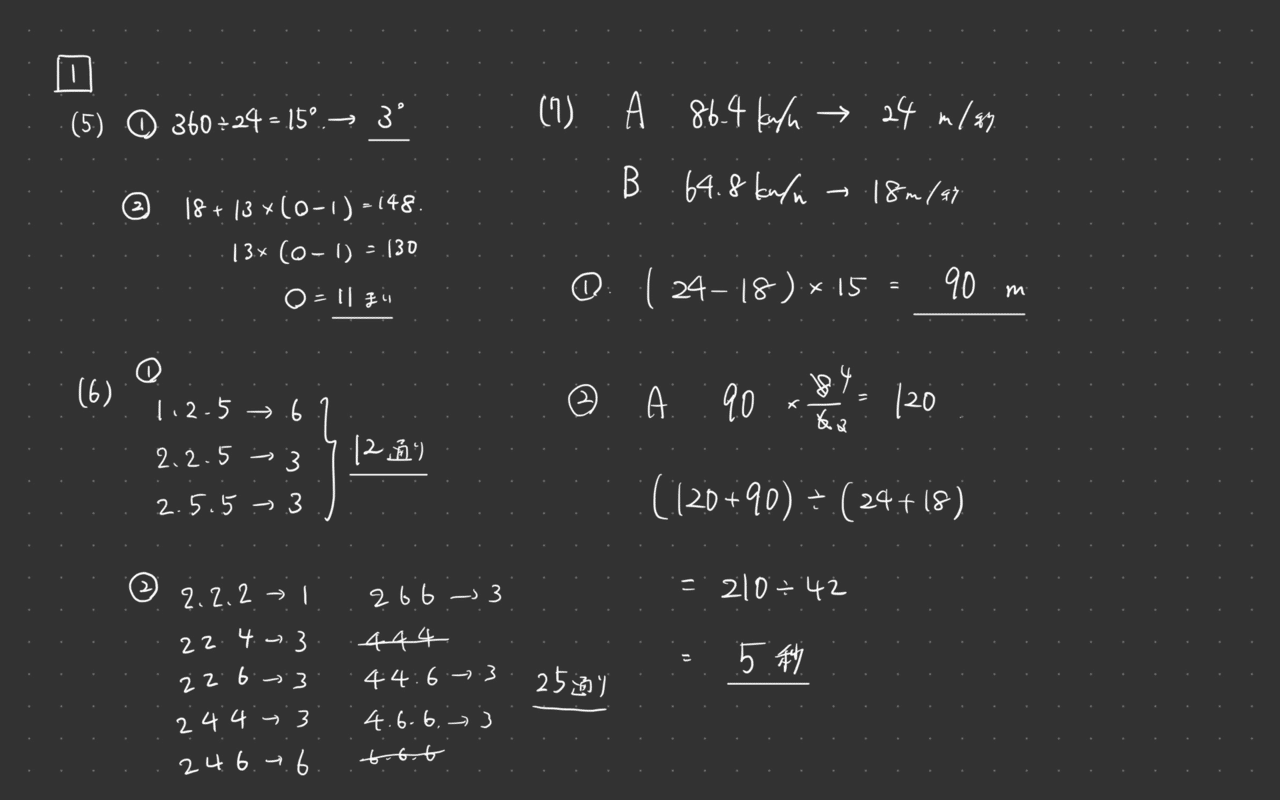 1
(5) ① 360÷24=15° → 3°
② 18+13×(○-1)=148.
13×(○-1)=130
○=11まい
(6) ①
1.2.5 → 6
2.2.5 → 3
2.5.5 → 3
12通り
② 2.2.2 → 1
2 2 4 → 3
2 2 6 → 3
2 4 4 → 3
2 4 6 → 6
2 6 6 → 3
4 4 4
4 4.6 → 3
4.6.6. → 3
6.6.6
25通り
(7) A 86.4 km/h → 24 m/秒
B 64.8 km/h → 18m/秒
① (24-18)×15 = 90 m
② A 90 × 8/6 4/3 = 120
(120+90)÷(24+18)
= 210÷42
= 5秒